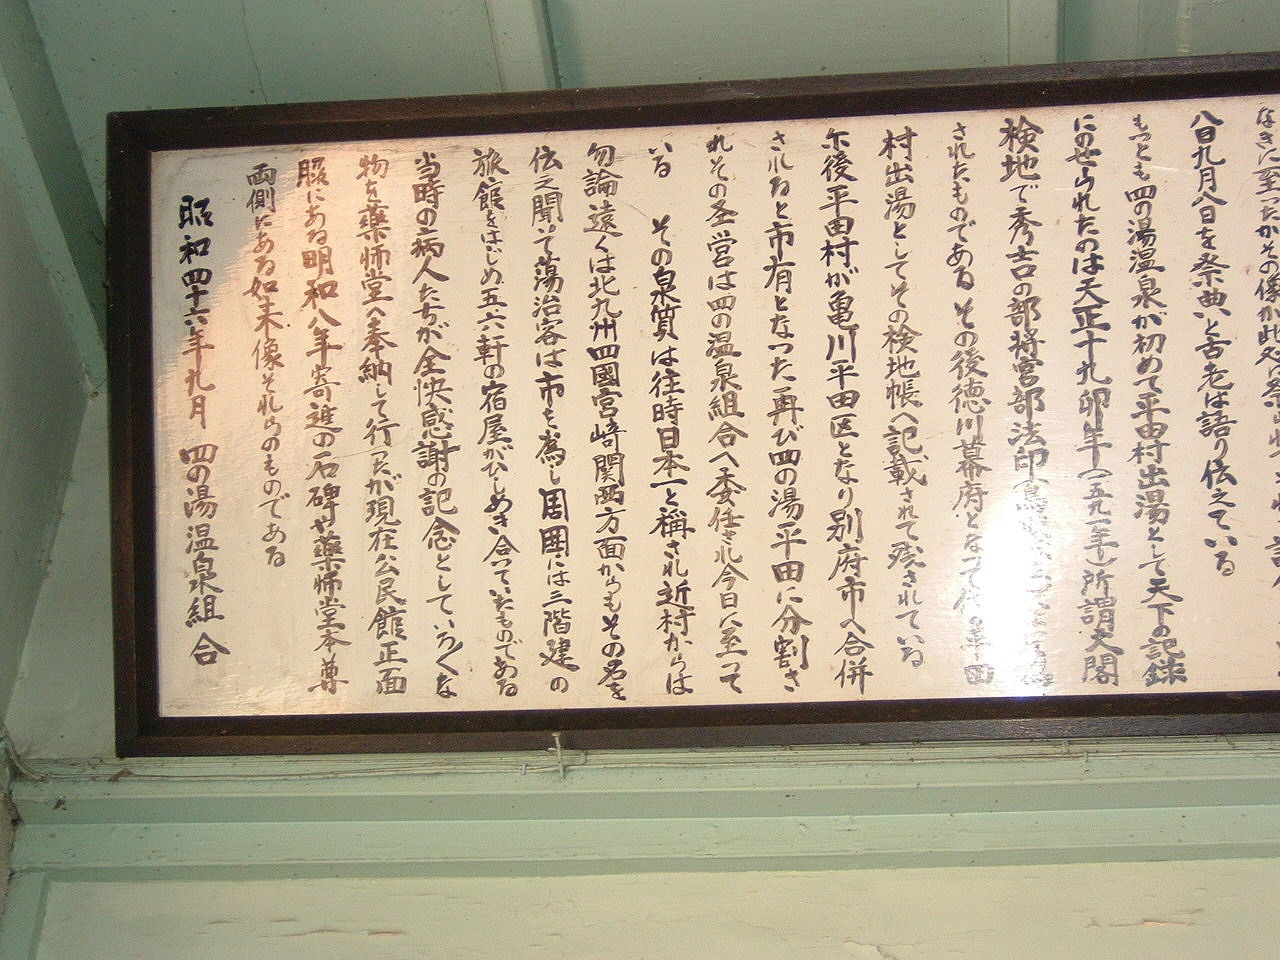 なきに至ったがその像が此
八日九月八日を祭典いと古老は語り伝えている
もっとも四の湯温泉が初めて平田村出湯として天下の記録
にのせられたのは天正十九卯年(一五九一年)所謂太閤
検地で秀吉の部将宮部法印
されたものである その後徳川幕府となって
村出湯としてその検地帳へ記載されて残されている
尓後平田村が亀川平田区となり別府市へ合併
されると市有となった再び四の湯平田に分割さ
れその圣営は四の温泉組合へ委任され今日に至って
いる その泉質は往時日本一と稱され近村からは
勿論遠くは北九州四國宮崎関西方面からもその名を
伝え聞いて蕩治客は市を為し周囲には三階建の
旅館をはじめ五六軒の宿屋がひしめき合っていたものである
当時の病人たちが全快感謝の記念としていろ〱な
物を薬師堂へ奉納して行ったが現在公民館正面
脇にある明和八年寄進の石碑や薬師堂本尊
両側にある如来像それらのものである
昭和四十六年九月 四の湯温泉組合